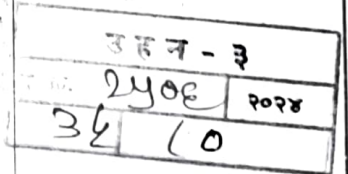 उहन - ३
२५०६ २०२४
३५ ७०